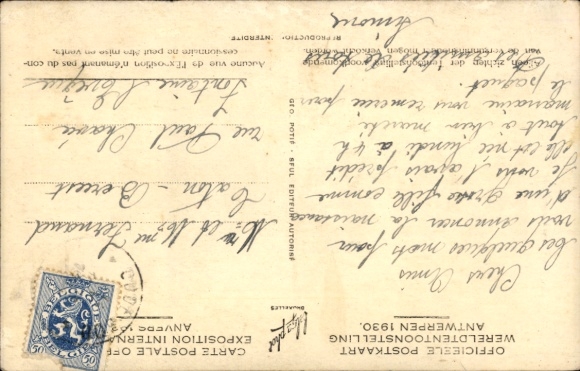 OFFICIEELE POSTKAART
WERELDTENTOONSTELLING
ANTWERPEN 1930.
CARTE POSTALE OFF
EXPOSITION INTERNA
ANVERS
BRUXELLES
Chers Amis
Ces quelques mots pour
vous annoncer la naissance
d'une grosse fille comme
je vous l'avais prédit
elle est née lundi à 4 h
tout à bien marché
marraine vous remercie pour
le paquet.
Simone
Mr et Mme Fernand
Caton-Berest
rue Paul
Fontaine l'Evêque
GEO. POTIÉ - SEUL ÉDITEUR AUTORISÉ
REPRODUCTION INTERDITE
Geen zichten der Tentoonstelling
van de
mogen verkocht worden.
Aucune vue de l'Exposition n'émanant pas du con-
cessionnaire ne peut être mise en vente.
BELGIQUE
BELGIË
50 50